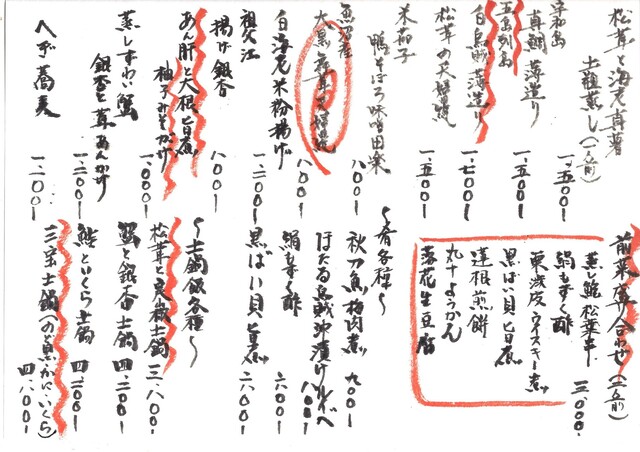 松茸と海老真薯
土瓶蒸し(一人前) 一、五〇〇
宇和島
真鯛 薄造り 一、五〇〇
五島列島
白烏賊 薄造り 一、七〇〇
松茸の天婦羅 一、五〇〇
米茄子
鴨そぼろ味噌田楽 一、八〇〇
魚沼産
大黒舞茸天婦羅 一、八〇〇
白海老米粉揚げ 一、二〇〇
祖父江
揚げ銀杏 八〇〇
あん肝と大根旨煮
柚子みそがけ 一、〇〇〇
蒸しずわい蟹
銀杏と茸あんかけ 一、二〇〇
へぎ蕎麦 一、二〇〇
前菜盛り合わせ(一人前) 三、〇〇〇
蒸し鮑松葉串
絹もずく酢
栗渋皮ウイスキー煮
黒ばい貝旨煮
蓮根煎餅
丸十ようかん
落花生豆腐
〜肴各種〜
秋刀魚梅肉煮 九〇〇
ほたる烏賊沖漬けルイベ 八〇〇
絹もずく酢 六〇〇
黒ばい貝旨煮 八〇〇
〜土鍋飯各種〜
松茸と炙り鱧土鍋 三、八〇〇
蟹と銀杏土鍋 四、二〇〇
鮭といくら土鍋 四、二〇〇
三宝土鍋(のど黒・かに・いくら) 四、八〇〇